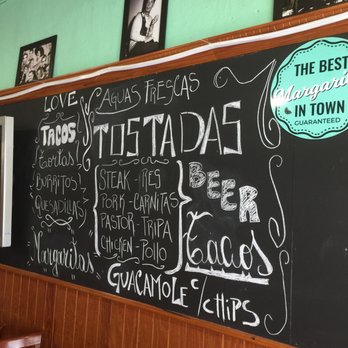 LOVE
TACOS
Tortas!
BURRITOS!
QUESADILLAS!
Margaritas
AGUAS FRESCAS
TOSTADAS
STEAK - RES
PORK - CARNITAS
PASTOR - TRIPA
CHICKEN - POLLO
BEER
Tacos
GUACAMOLE C/CHIPS
THE BEST
Margarit
IN TOWN
GUARANTEED